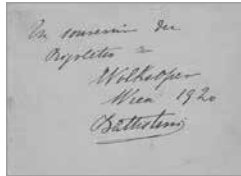 En souvenir du
Rigoletto a
Volksoper
Wien 1920
Battistini